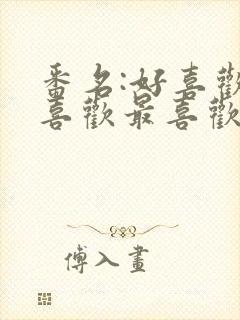 番名:好喜歡
喜歡最喜歡
傅入畫